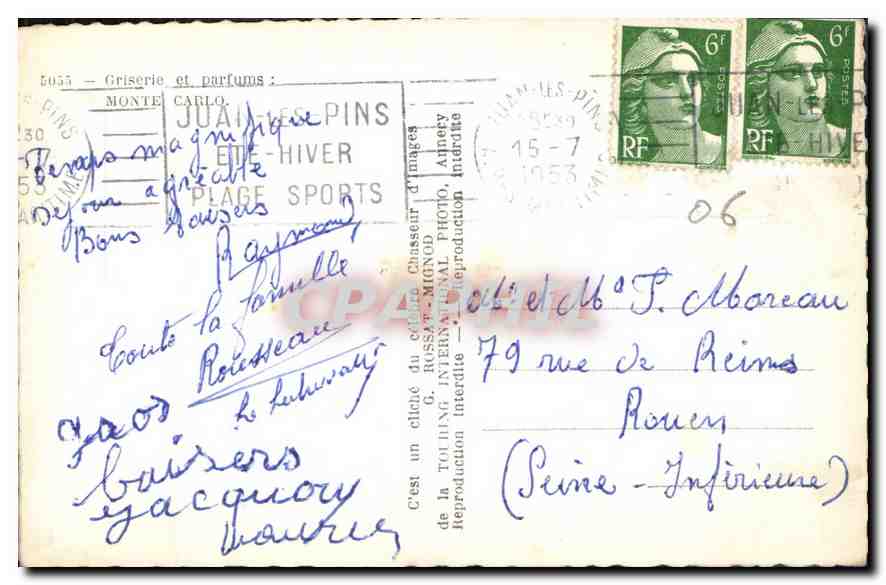 5055 — Griserie et parfums :
MONTE CARLO.
JUAN-LES-PINS
ETE-HIVER
PLAGE SPORTS
Temps magnifique
Sejour agréable
Bons baisers
Raymond
Toute la famille
Rousseau
gros
baisers
Jacquou
Maurice
C'est un cliché du célèbre Chasseur d'Images
G. ROSSAT-MIGNOD
de la TOURING INTERNATIONAL PHOTO, Annecy
Reproduction interdite — Reproduction interdite
JUAN-LES-PINS
15-7
1953
6F
POSTES
RF
6F
POSTES
RF
JUAN-LES-P
-HIVE
06
CPAPHIL
Mr et Md P. Moreau
79 rue de Reims
Rouen
(Seine-Inférieure)